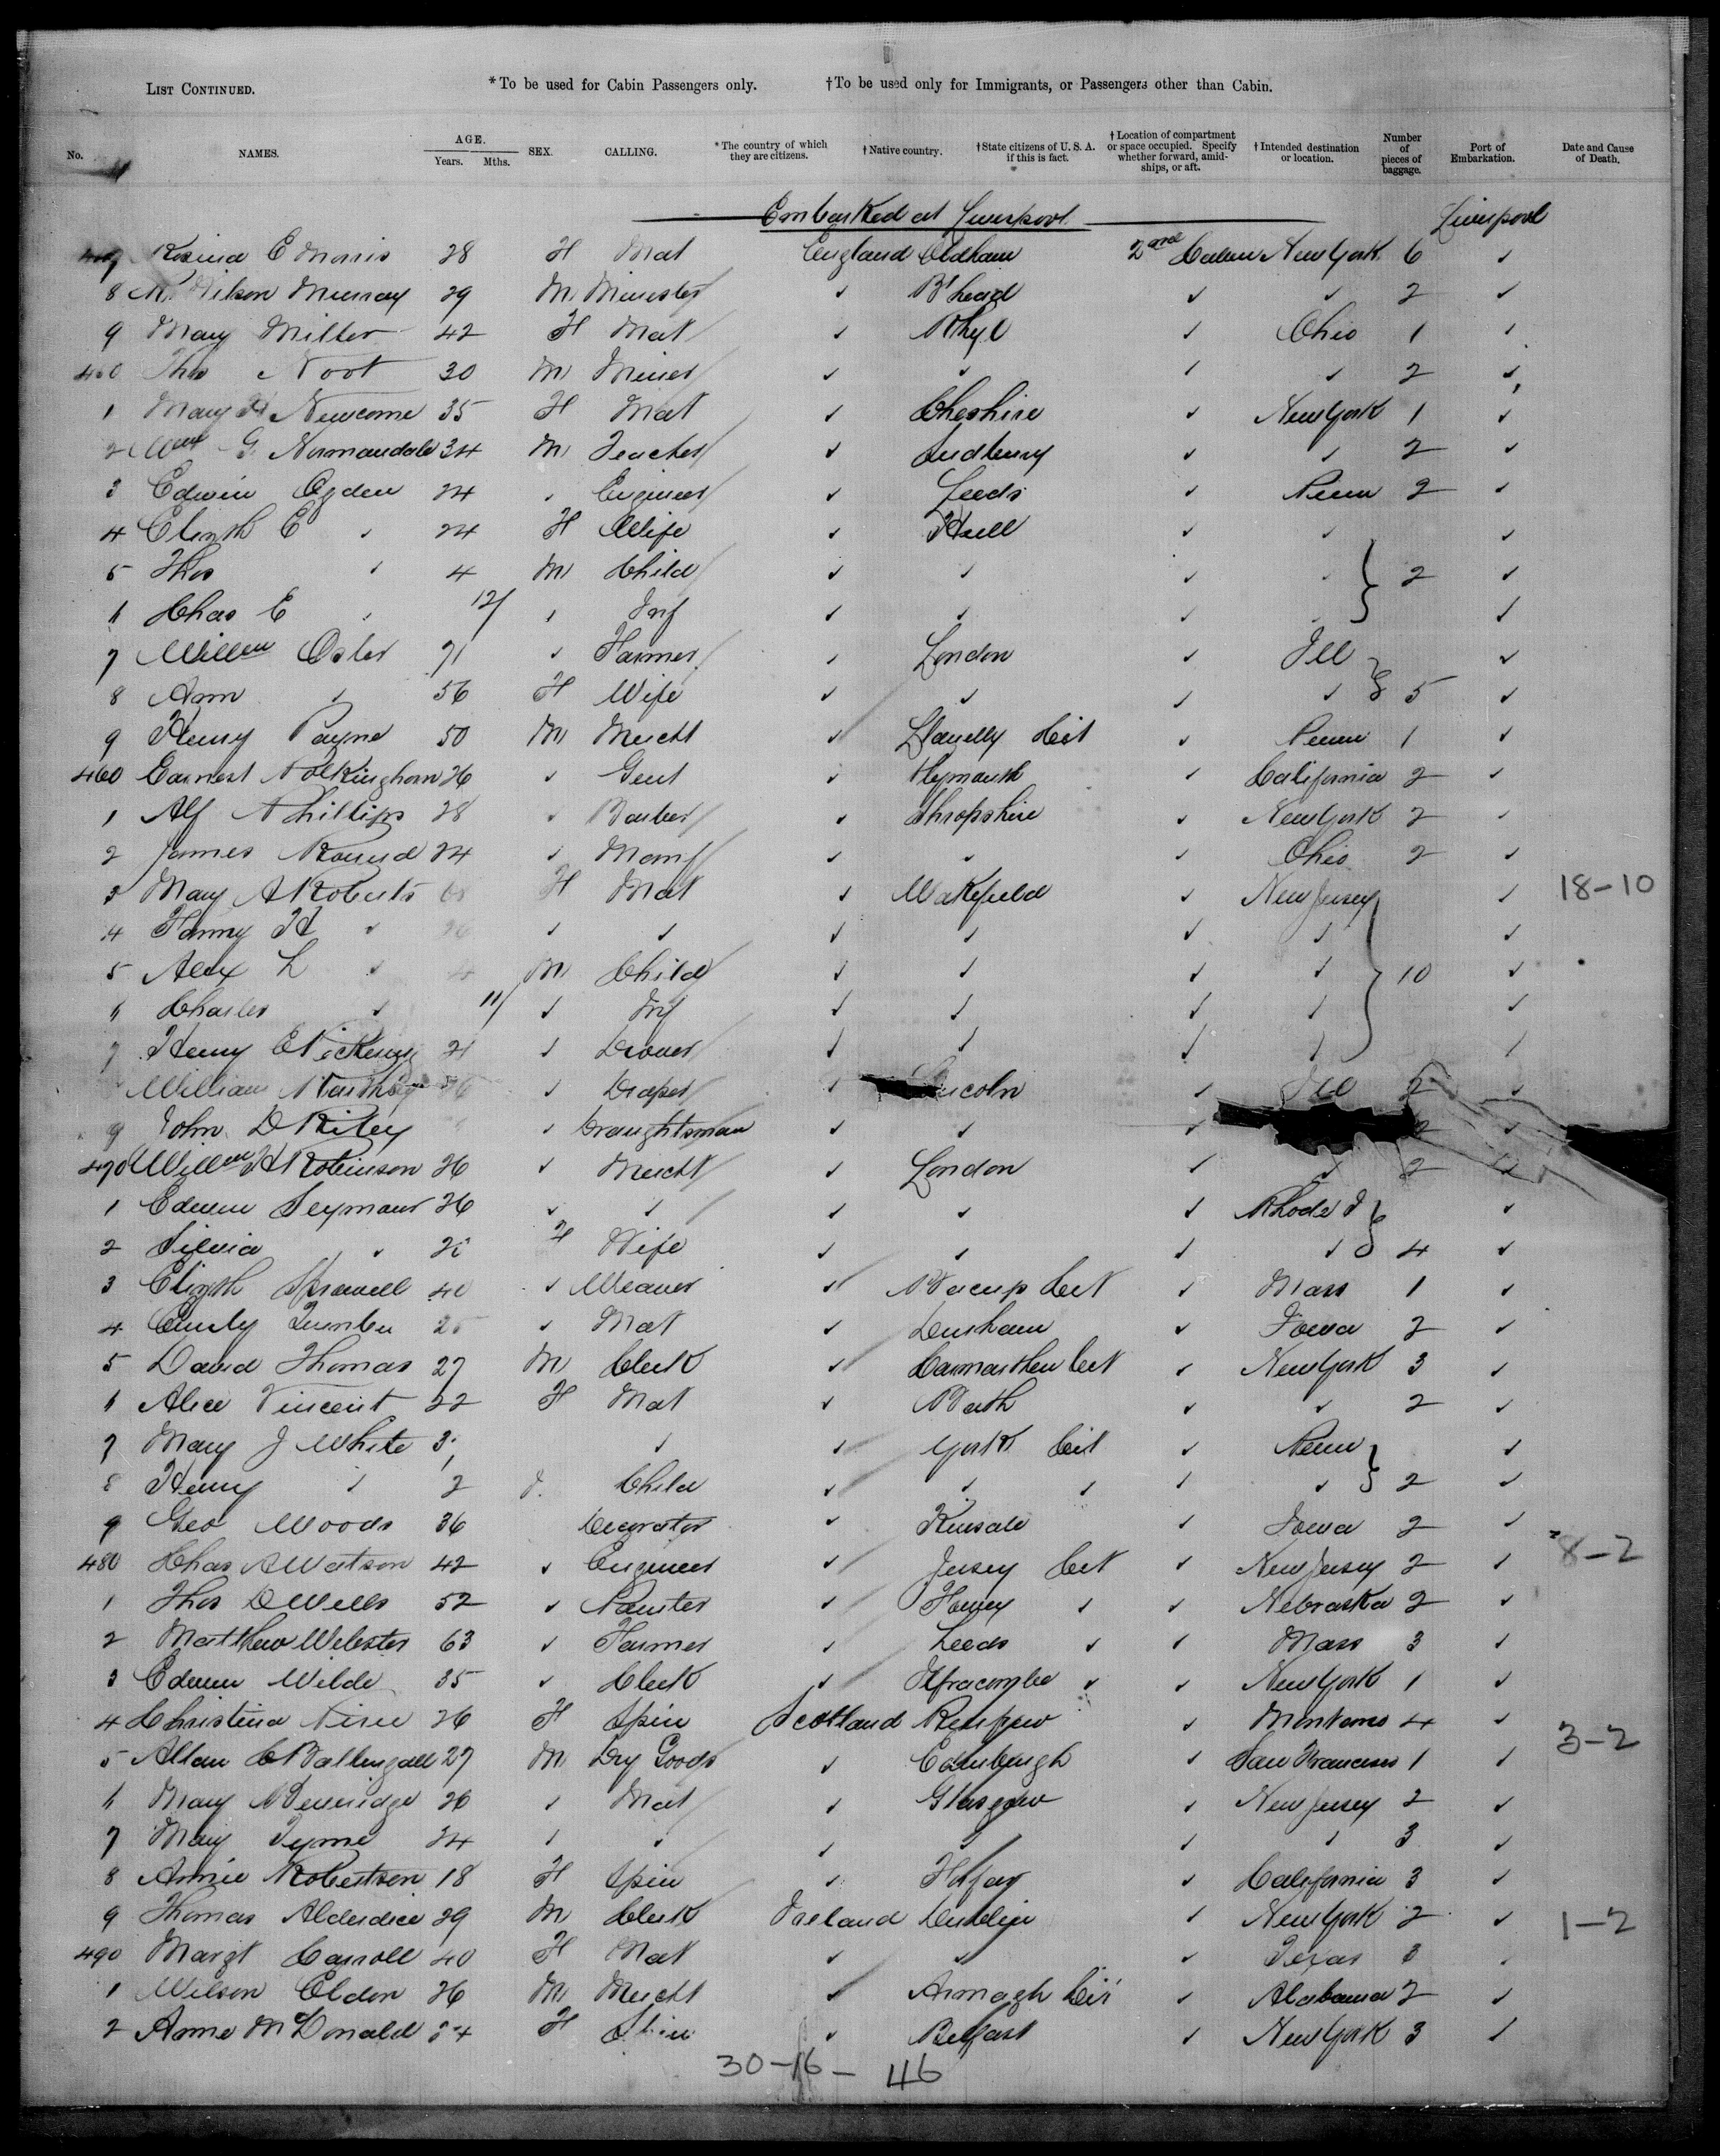 LIST CONTINUED. *To be used for Cabin Passengers only. †To be used only for Immigrants, or Passengers other than Cabin.
No. NAMES. AGE. Years. Mths. SEX. CALLING. *The country of which they are citizens. †Native country. †State citizens of U. S. A. if this is fact. †Location of compartment or space occupied. Specify whether forward, amidships, or aft. †Intended destination or location. Number of pieces of baggage. Port of Embarkation. Date and Cause of Death.
Embarked at Liverpool Liverpool
Rosina E Morris 28 F Mat England Oldham 2nd Cabin New York 6 ✓
8 Wilson Murray 29 M Minister ✓ B'head ✓ ✓ 2 ✓
9 Mary Miller 42 F Mat ✓ Rhyl ✓ Ohio 1 ✓
450 Thos Noot 30 M Miner ✓ ✓ ✓ ✓ 2 ✓
1 Mary H Newcome 35 F Mat ✓ Cheshire ✓ New York 1 ✓
2 Wm G. Normandale 34 M Teacher ✓ Sudbury ✓ ✓ 2 ✓
3 Edwin Ogden 24 ✓ Engineer ✓ Leeds ✓ Penn 2 ✓
4 Elizth E ✓ 24 F Wife ✓ Hull ✓ ✓ ✓
5 Thos ✓ 4 M Child ✓ ✓ ✓ ✓ 2 ✓
6 Chas E ✓ 12/ ✓ Inf ✓ ✓ ✓ ✓ ✓
7 Willm Osler 71 ✓ Farmer ✓ London ✓ Ill ✓
8 Ann ✓ 56 F Wife ✓ ✓ ✓ ✓ 5 ✓
9 Henry Payne 50 M Mercht ✓ Llanelly Cit ✓ Penn 1 ✓
460 Earnest Polkinghorn 26 ✓ Gent ✓ Plymouth ✓ California 2 ✓
1 Alf Phillips 28 ✓ Barber ✓ Shropshire ✓ New York 2 ✓
2 James Round 24 ✓ Manf ✓ ✓ ✓ Ohio 2 ✓
3 Mary A Roberts F Mat ✓ Wakefield ✓ New Jersey ✓ 18-10
4 Fanny H ✓ 26 ✓ ✓ ✓ ✓ ✓ ✓ ✓
5 Alex L ✓ 4 M Child ✓ ✓ ✓ ✓ 10 ✓
6 Charles ✓ 11/ ✓ Inf ✓ ✓ ✓ ✓ ✓
7 Henry E Pickering 21 ✓ ✓ ✓ ✓ ✓ ✓
William ✓ Draper ✓ Lincoln ✓ Ill 2 ✓
9 John D Riley ✓ Draughtsman ✓ ✓ ✓ 2 ✓
470 Willm H Robinson 26 ✓ Mercht ✓ London ✓ ✓ 2 ✓
1 Edwin Seymour 26 ✓ ✓ ✓ ✓ ✓ Rhode I ✓
2 Silvia ✓ F Wife ✓ ✓ ✓ ✓ 4 ✓
3 Elizth 40 ✓ Weaver ✓ Bacup Cit ✓ Mass 1 ✓
4 Emily 25 ✓ Mat ✓ Durham ✓ Iowa 2 ✓
5 David Thomas 27 M Clerk ✓ Carmarthen Cit ✓ New York 3 ✓
6 Alice Vincent 22 F Mat ✓ Bath ✓ ✓ 2 ✓
7 Mary J White ✓ ✓ York Cit ✓ Penn ✓
8 Henry ✓ 2 Child ✓ ✓ ✓ ✓ ✓ 2 ✓
9 Geo Woods 36 Decorator ✓ Kinsale ✓ Iowa 2 ✓
480 Chas A Watson 42 ✓ Engineer ✓ Jersey Cit ✓ New Jersey 2 ✓ 8-2
1 Thos D Wells 52 ✓ Painter ✓ Fowey ✓ ✓ Nebraska 2 ✓
2 Matthew Webster 63 ✓ Farmer ✓ Leeds ✓ ✓ Mass 3 ✓
3 Edwin Wilde 35 ✓ Clerk ✓ Ilfracombe ✓ ✓ New York 1 ✓
4 Christina 26 F Spin Scotland Renfrew ✓ Montana 4 ✓
5 Allan C Ballingall 27 M Dry Goods ✓ Edinburgh ✓ San Francisco 1 ✓ 3-2
6 Mary 26 ✓ Mat ✓ Glasgow ✓ New Jersey 2 ✓
7 Mary Tyme 24 ✓ ✓ ✓ ✓ ✓ ✓ 3 ✓
8 Annie Robertson 18 F Spin ✓ ✓ California 3 ✓
9 Thomas Alderdice 29 M Clerk Ireland Dublin ✓ New York 2 ✓ 1-2
490 Margt Carroll 40 F Mat ✓ ✓ ✓ Texas 3
1 Wilson Eldon 26 M Mercht ✓ Armagh Cit ✓ Alabama 2 ✓
2 Anne McDonald F Spin ✓ Belfast ✓ New York 3 ✓
30-16- 46